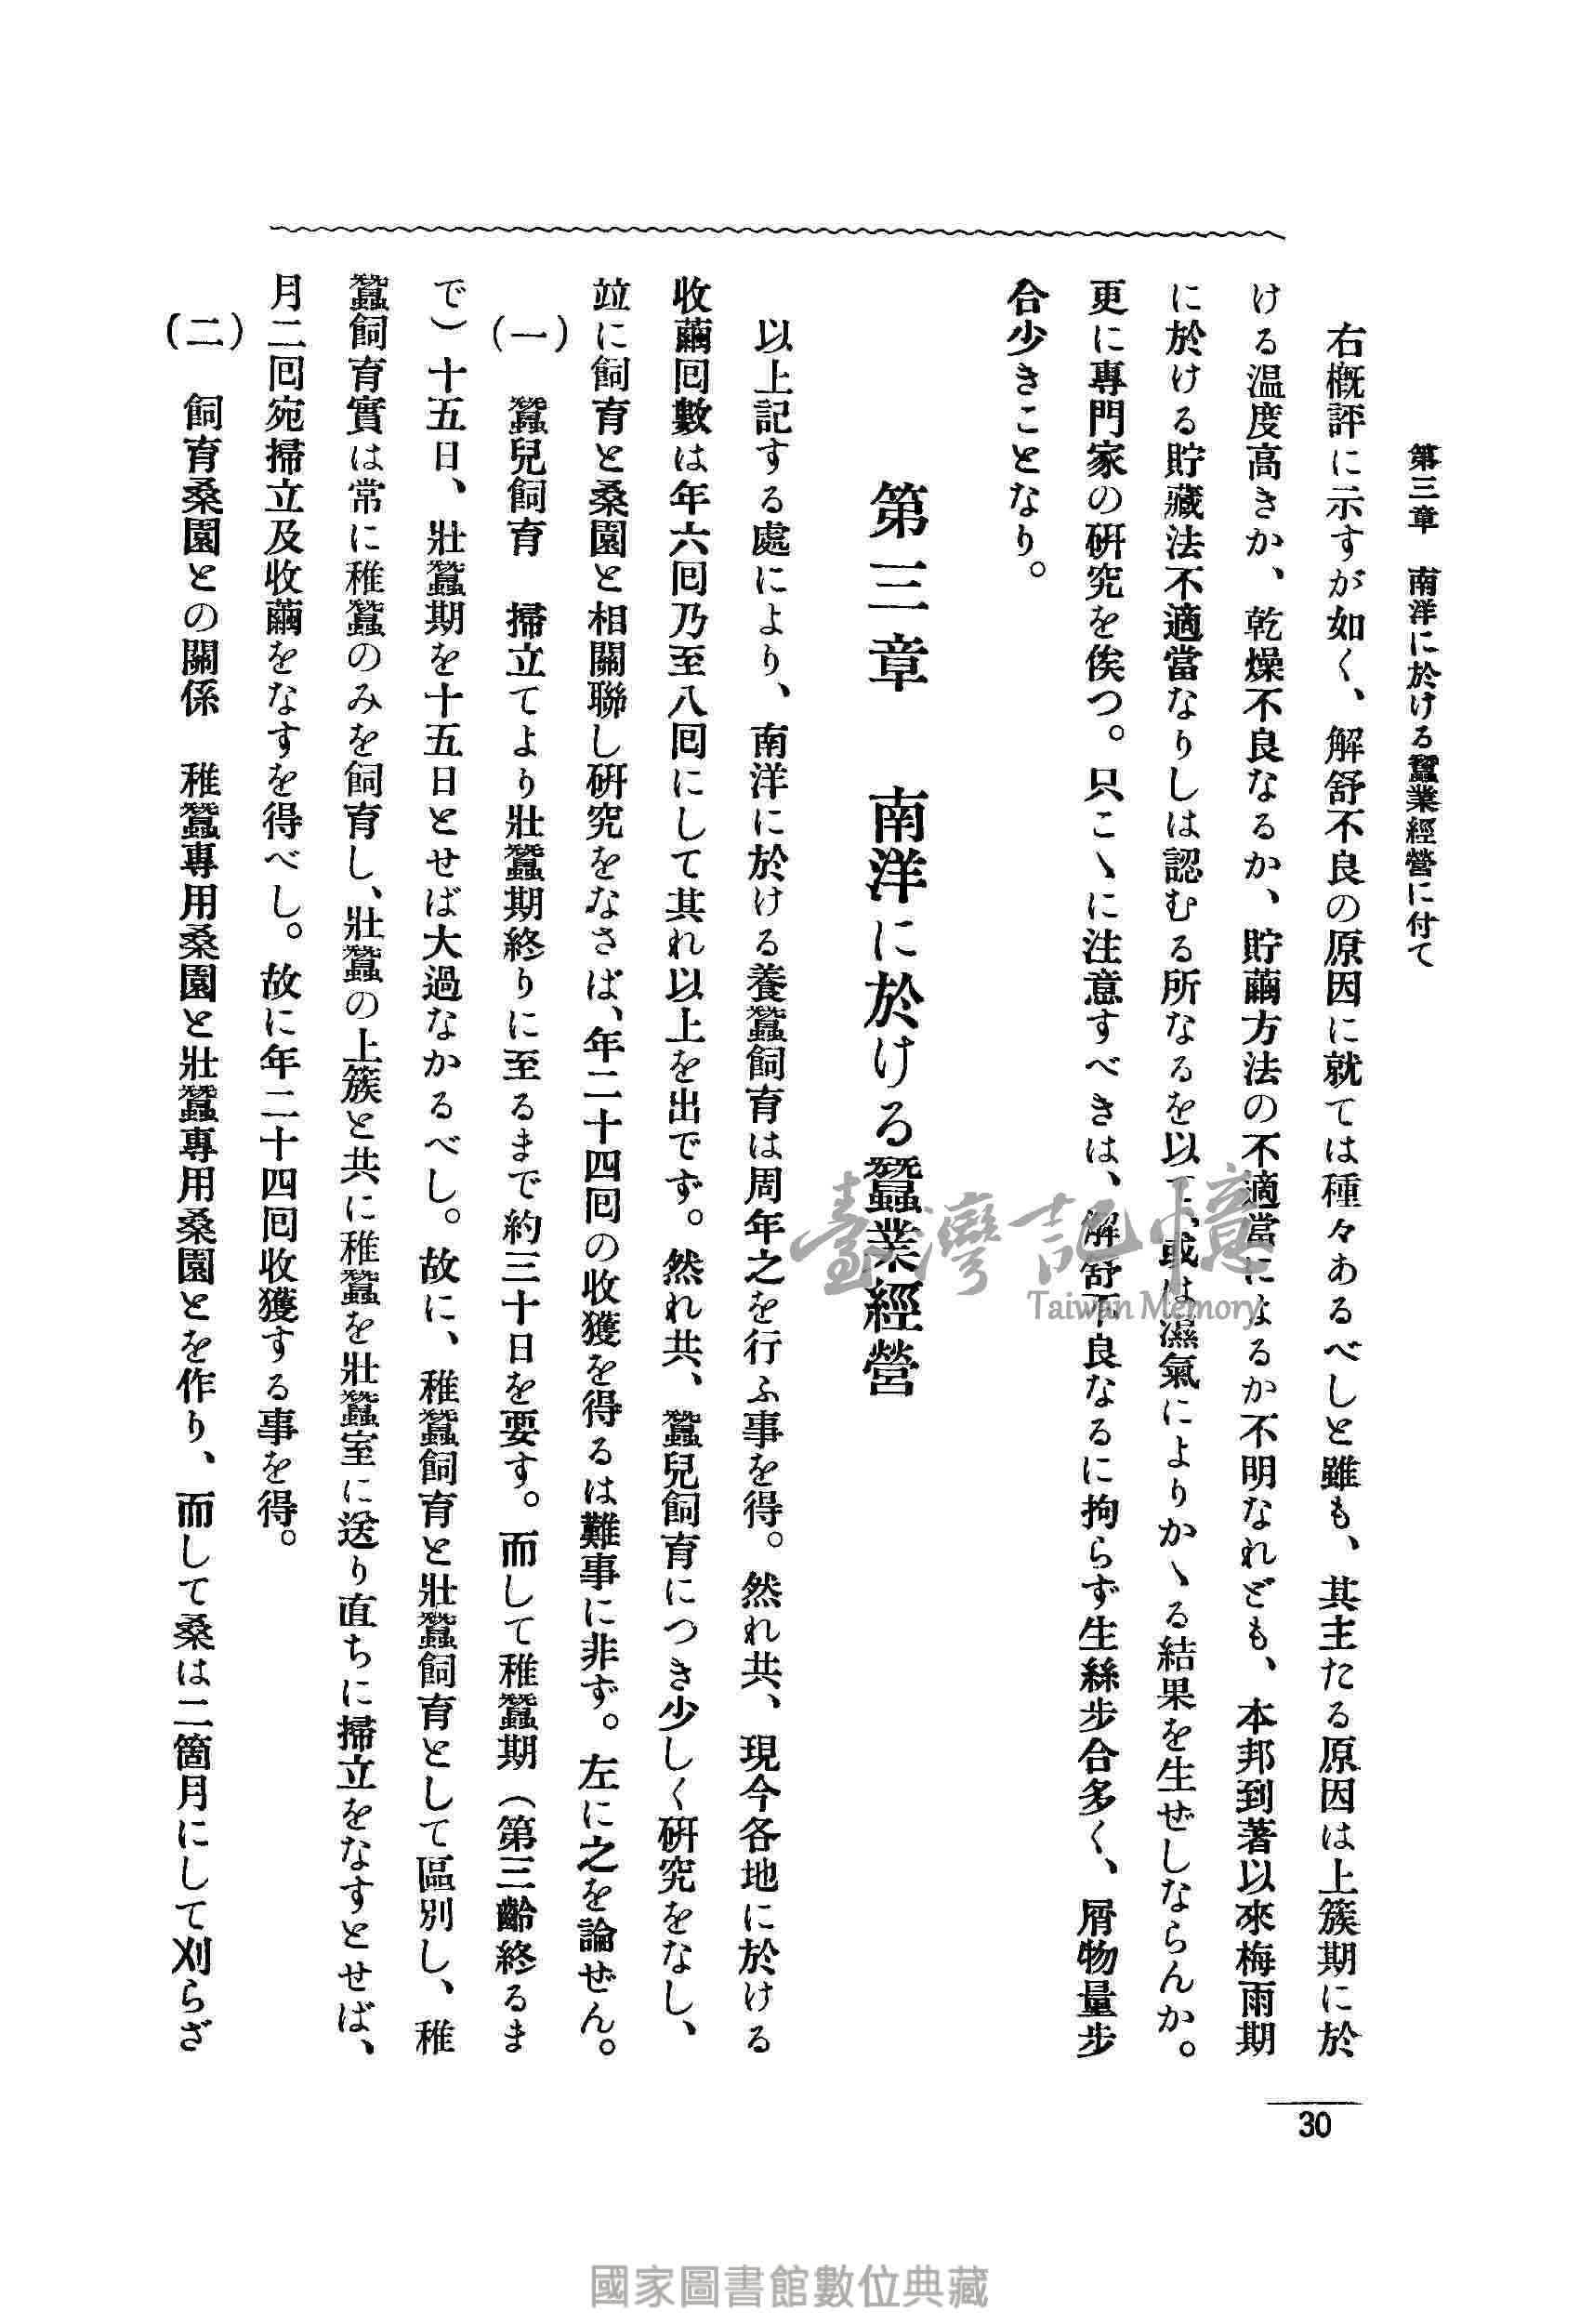 第三章　南洋に於ける蠶業經營に付て
右概評に示すが如く、解舒不良の原因に就ては種々あるべしと雖も、其主たる原因は上簇期に於
ける温度高きか、乾燥不良なるか、貯繭方法の不適當になるか不明なれども、本邦到著以來梅雨期
に於ける貯藏法不適當なりしは認むる所なるを以て、或は濕氣によりかゝる結果を生ぜしならんか。
更に專門家の硏究を俟つ。只こゝに注意すべきは、解舒不良なるに拘らず生絲步合多く、屑物量步
合少きことなり。
第三章　南洋に於ける蠶業經營
以上記する處により、南洋に於ける養蠶飼育は周年之を行ふ事を得。然れ共、現今各地に於ける
收繭囘數は年六囘乃至八囘にして其れ以上を出でず。然れ共、蠶兒飼育につき少しく硏究をなし、
竝に飼育と桑園と相關聯し硏究をなさば、年二十四囘の收獲を得るは難事に非ず。左に之を論ぜん。
(一)　蠶兒飼育　掃立てより壯蠶期終りに至るまで約三十日を要す。而して稚蠶期（第三齡終るま
で）十五日、壯蠶期を十五日とせば大過なかるべし。故に、稚蠶飼育と壯蠶飼育として區別し、稚
蠶飼育實は常に稚蠶のみを飼育し、壯蠶の上簇と共に稚蠶を壯蠶室に送り直ちに掃立をなすとせば、
月二囘宛掃立及收繭をなすを得べし。故に年二十四囘收獲する事を得。
(二)　飼育桑園との關係　稚蠶專用桑園と壯蠶專用桑園とを作り、而して桑は二箇月にして刈らざ
30
臺灣記憶
Taiwan Memory
國家圖書館數位典藏